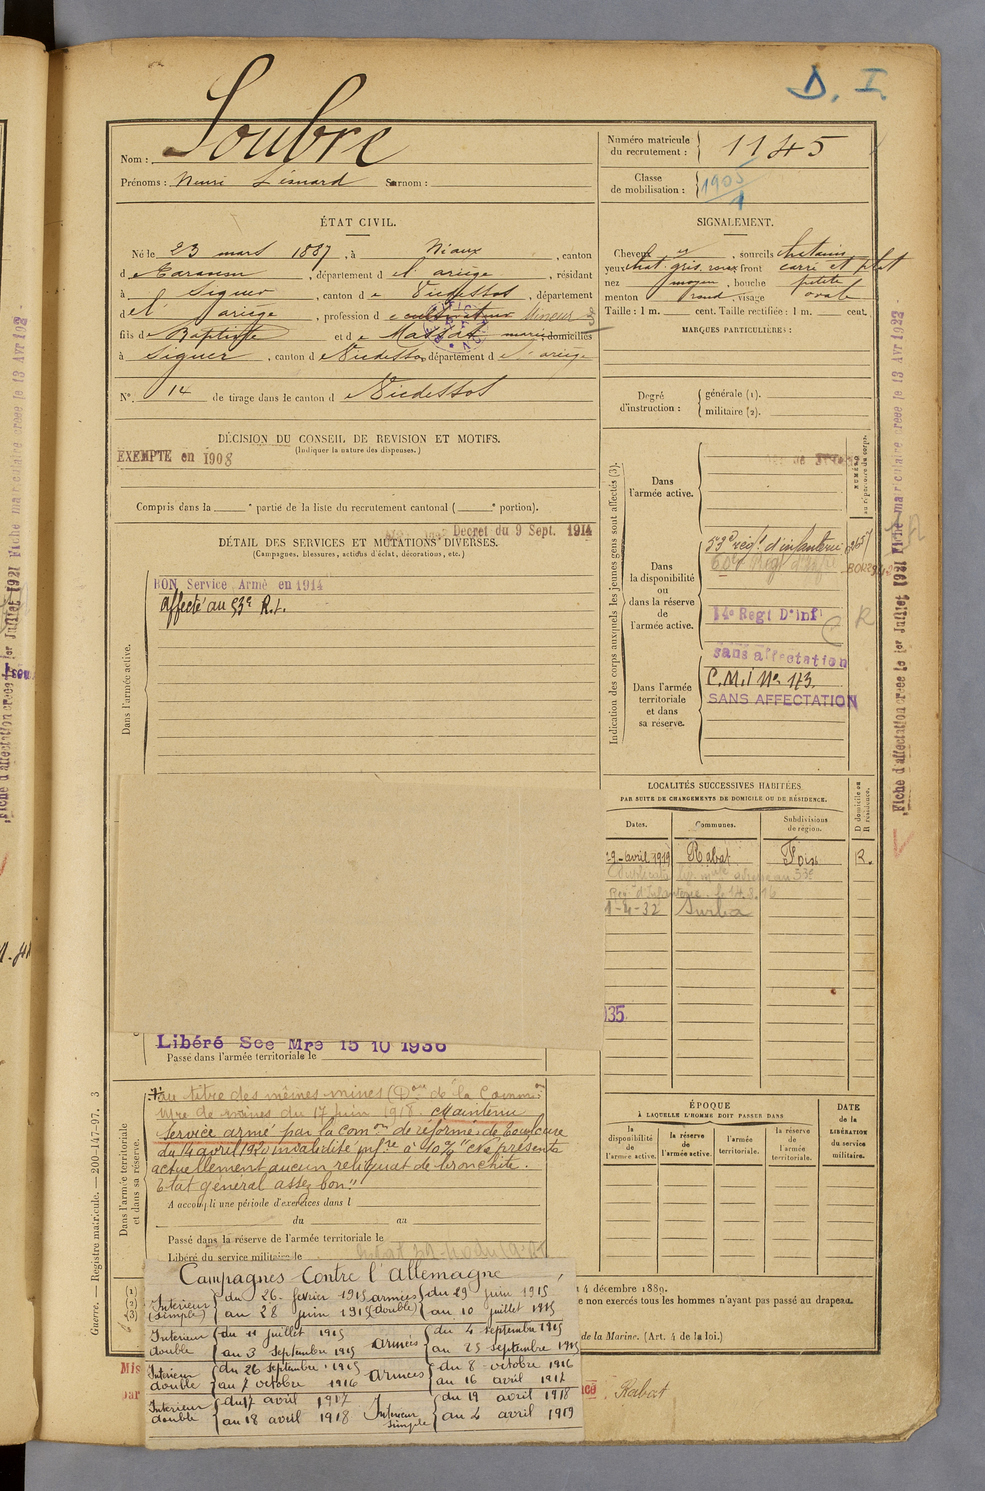 D. I.
Nom : Soubre
Prénoms : Henri Léonard Surnom :
Numéro matricule du recrutement : 1145
Classe de mobilisation : 1905/1
ÉTAT CIVIL.
Né le 23 mars 1887, à Niaux, canton
d e Tarascon, département d e l'ariège, résidant
à Siguer, canton d e Vicdessos, département
d e l'ariège, profession d e cultivateur Mineur
fils de Baptiste et de Massat marie domiciliés
à Siguer, canton d e Vicdessos, département d e l'ariège
N° 14 de tirage dans le canton d e Vicdessos
SIGNALEMENT.
Cheveux et, sourcils chatains
yeux chat. gris. roux front carré et plat
nez moyen, bouche petite
menton rond, visage ovale
Taille : 1 m. cent. Taille rectifiée : 1 m. cent.
MARQUES PARTICULIÈRES :
Degré d'instruction : générale (1).
militaire (2).
DÉCISION DU CONSEIL DE REVISION ET MOTIFS.
(Indiquer la nature des dispenses.)
EXEMPTE en 1908
Compris dans la ° partie de la liste du recrutement cantonal ( ° portion).
Decret du 9 Sept. 1914
DÉTAIL DES SERVICES ET MUTATIONS DIVERSES.
(Campagnes, blessures, actions d'éclat, décorations, etc.)
Dans l'armée active.
BON Service Armé en 1914
affecté au 53e R.I.
Indication des corps auxquels les jeunes gens sont affectés (3).
NUMÉRO au répertoire du corps.
Dans l'armée active.
Dans la disponibilité ou dans la réserve de l'armée active.
53e régt d'infanterie
14e Regt D'inf
sans affectation
Dans l'armée territoriale et dans sa réserve.
C.M.I No 173.
SANS AFFECTATION
R
Fiche matriculaire creee le 13 Avr 1922
Fiche d'affectation creee le 1er Juillet 1921
LOCALITÉS SUCCESSIVES HABITÉES
PAR SUITE DE CHANGEMENTS DE DOMICILE OU DE RÉSIDENCE.
Dates. Communes. Subdivisions de région. D domicile ou R résidence.
29-avril 1919 Rabat Foix R.
Regt d'Infanterie le 14.8.16
1-4-32 Surba
935
Libéré Sce Mre 15 10 1936
Passé dans l'armée territoriale le
Dans l'armée territoriale et dans sa réserve.
au titre des mêmes mines (Don de la Commi
mre de mines du 17 juin 1918. Maintenu
Service armé par la Comon de réforme de Toulouse
du 14 avril 1920 invalidité infre à 10% "Ne présente
actuellement aucun reliquat de bronchite.
Etat général assez bon"
A accompli une période d'exercices dans l
du au
Passé dans la réserve de l'armée territoriale le
Libéré du service militaire le
ÉPOQUE
À LAQUELLE L'HOMME DOIT PASSER DANS
la disponibilité de l'armée active. la réserve de l'armée active. l'armée territoriale. la réserve de l'armée territoriale.
DATE de la LIBÉRATION du service militaire.
Guerre. — Registre matricule. — 200-147-97. 3
(1)
(2)
(3)
4 décembre 1889.
e non exercés tous les hommes n'ayant pas passé au drapeau.
de la Marine. (Art. 4 de la loi.)
Campagnes Contre l'Allemagne
Intérieur (simple) du 26 février 1915 au 28 juin 1915
armées (double) du 29 juin 1915 au 10 juillet 1915
Intérieur double du 11 juillet 1915 au 3 Septembre 1915
armées du 4 septembre 1915 au 25 septembre 1915
Intérieur double du 26 septembre 1915 au 7 octobre 1916
armées du 8 octobre 1916 au 16 avril 1917
Intérieur double du 17 avril 1917 au 18 avril 1918
Intérieur simple du 19 avril 1918 au 2 avril 1919
Mis
par
Rabat